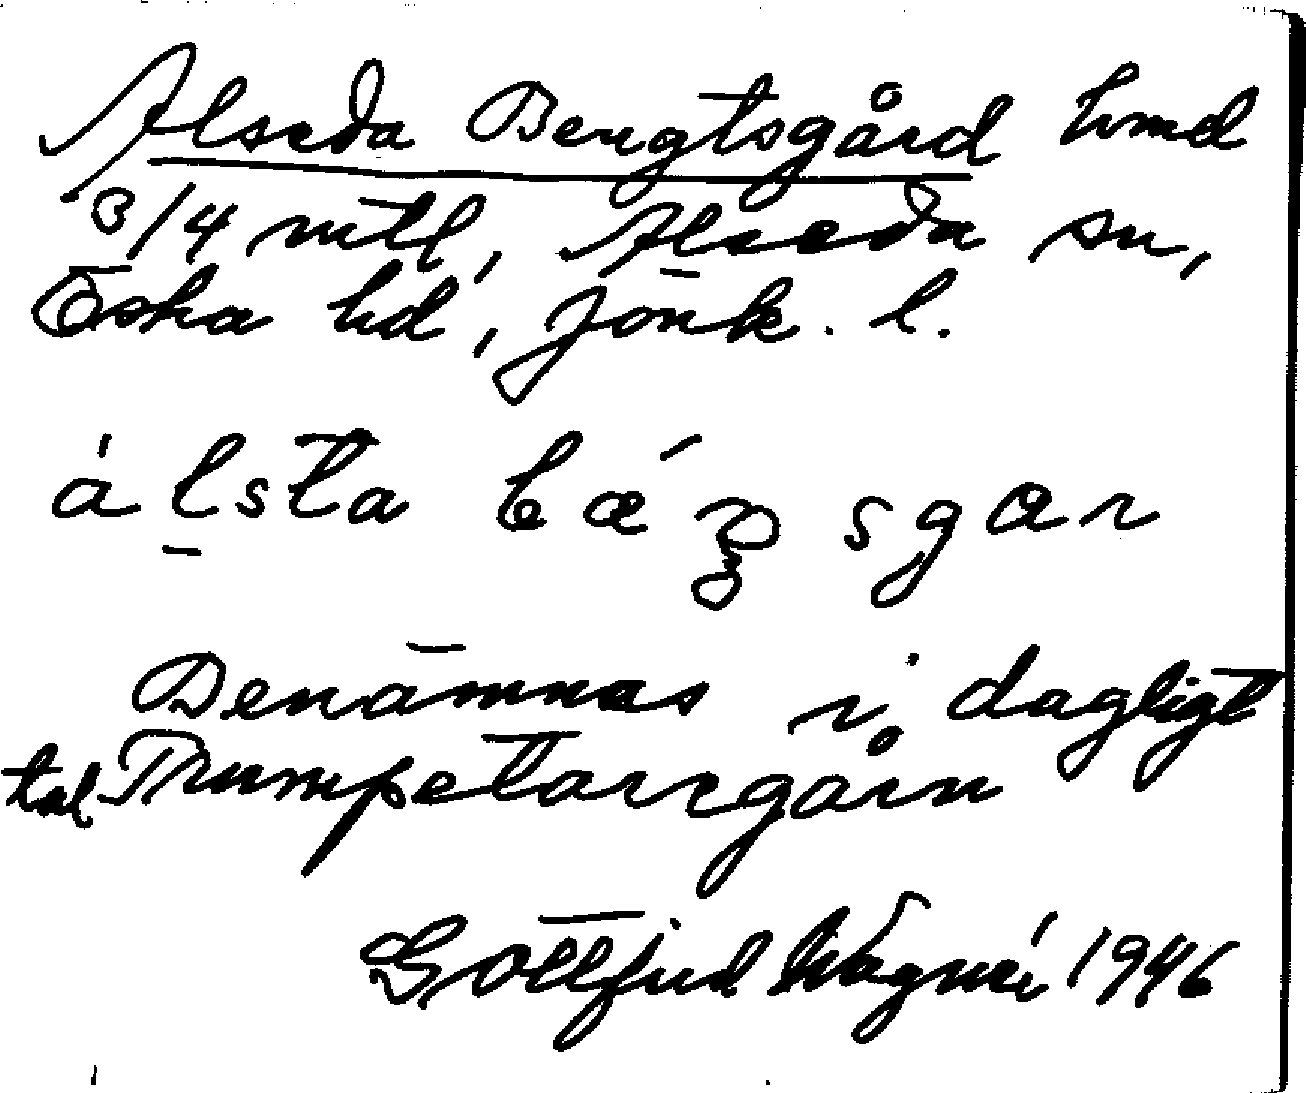 Alseda Bengtsgård hmd
3/4 mtl, Alseda sn,
Östra hd, Jönk. l.
álsta bǽ sgar
Benämnes i dagligt
tal Trumpetaregårn
Gottfrid Wagnér 1946